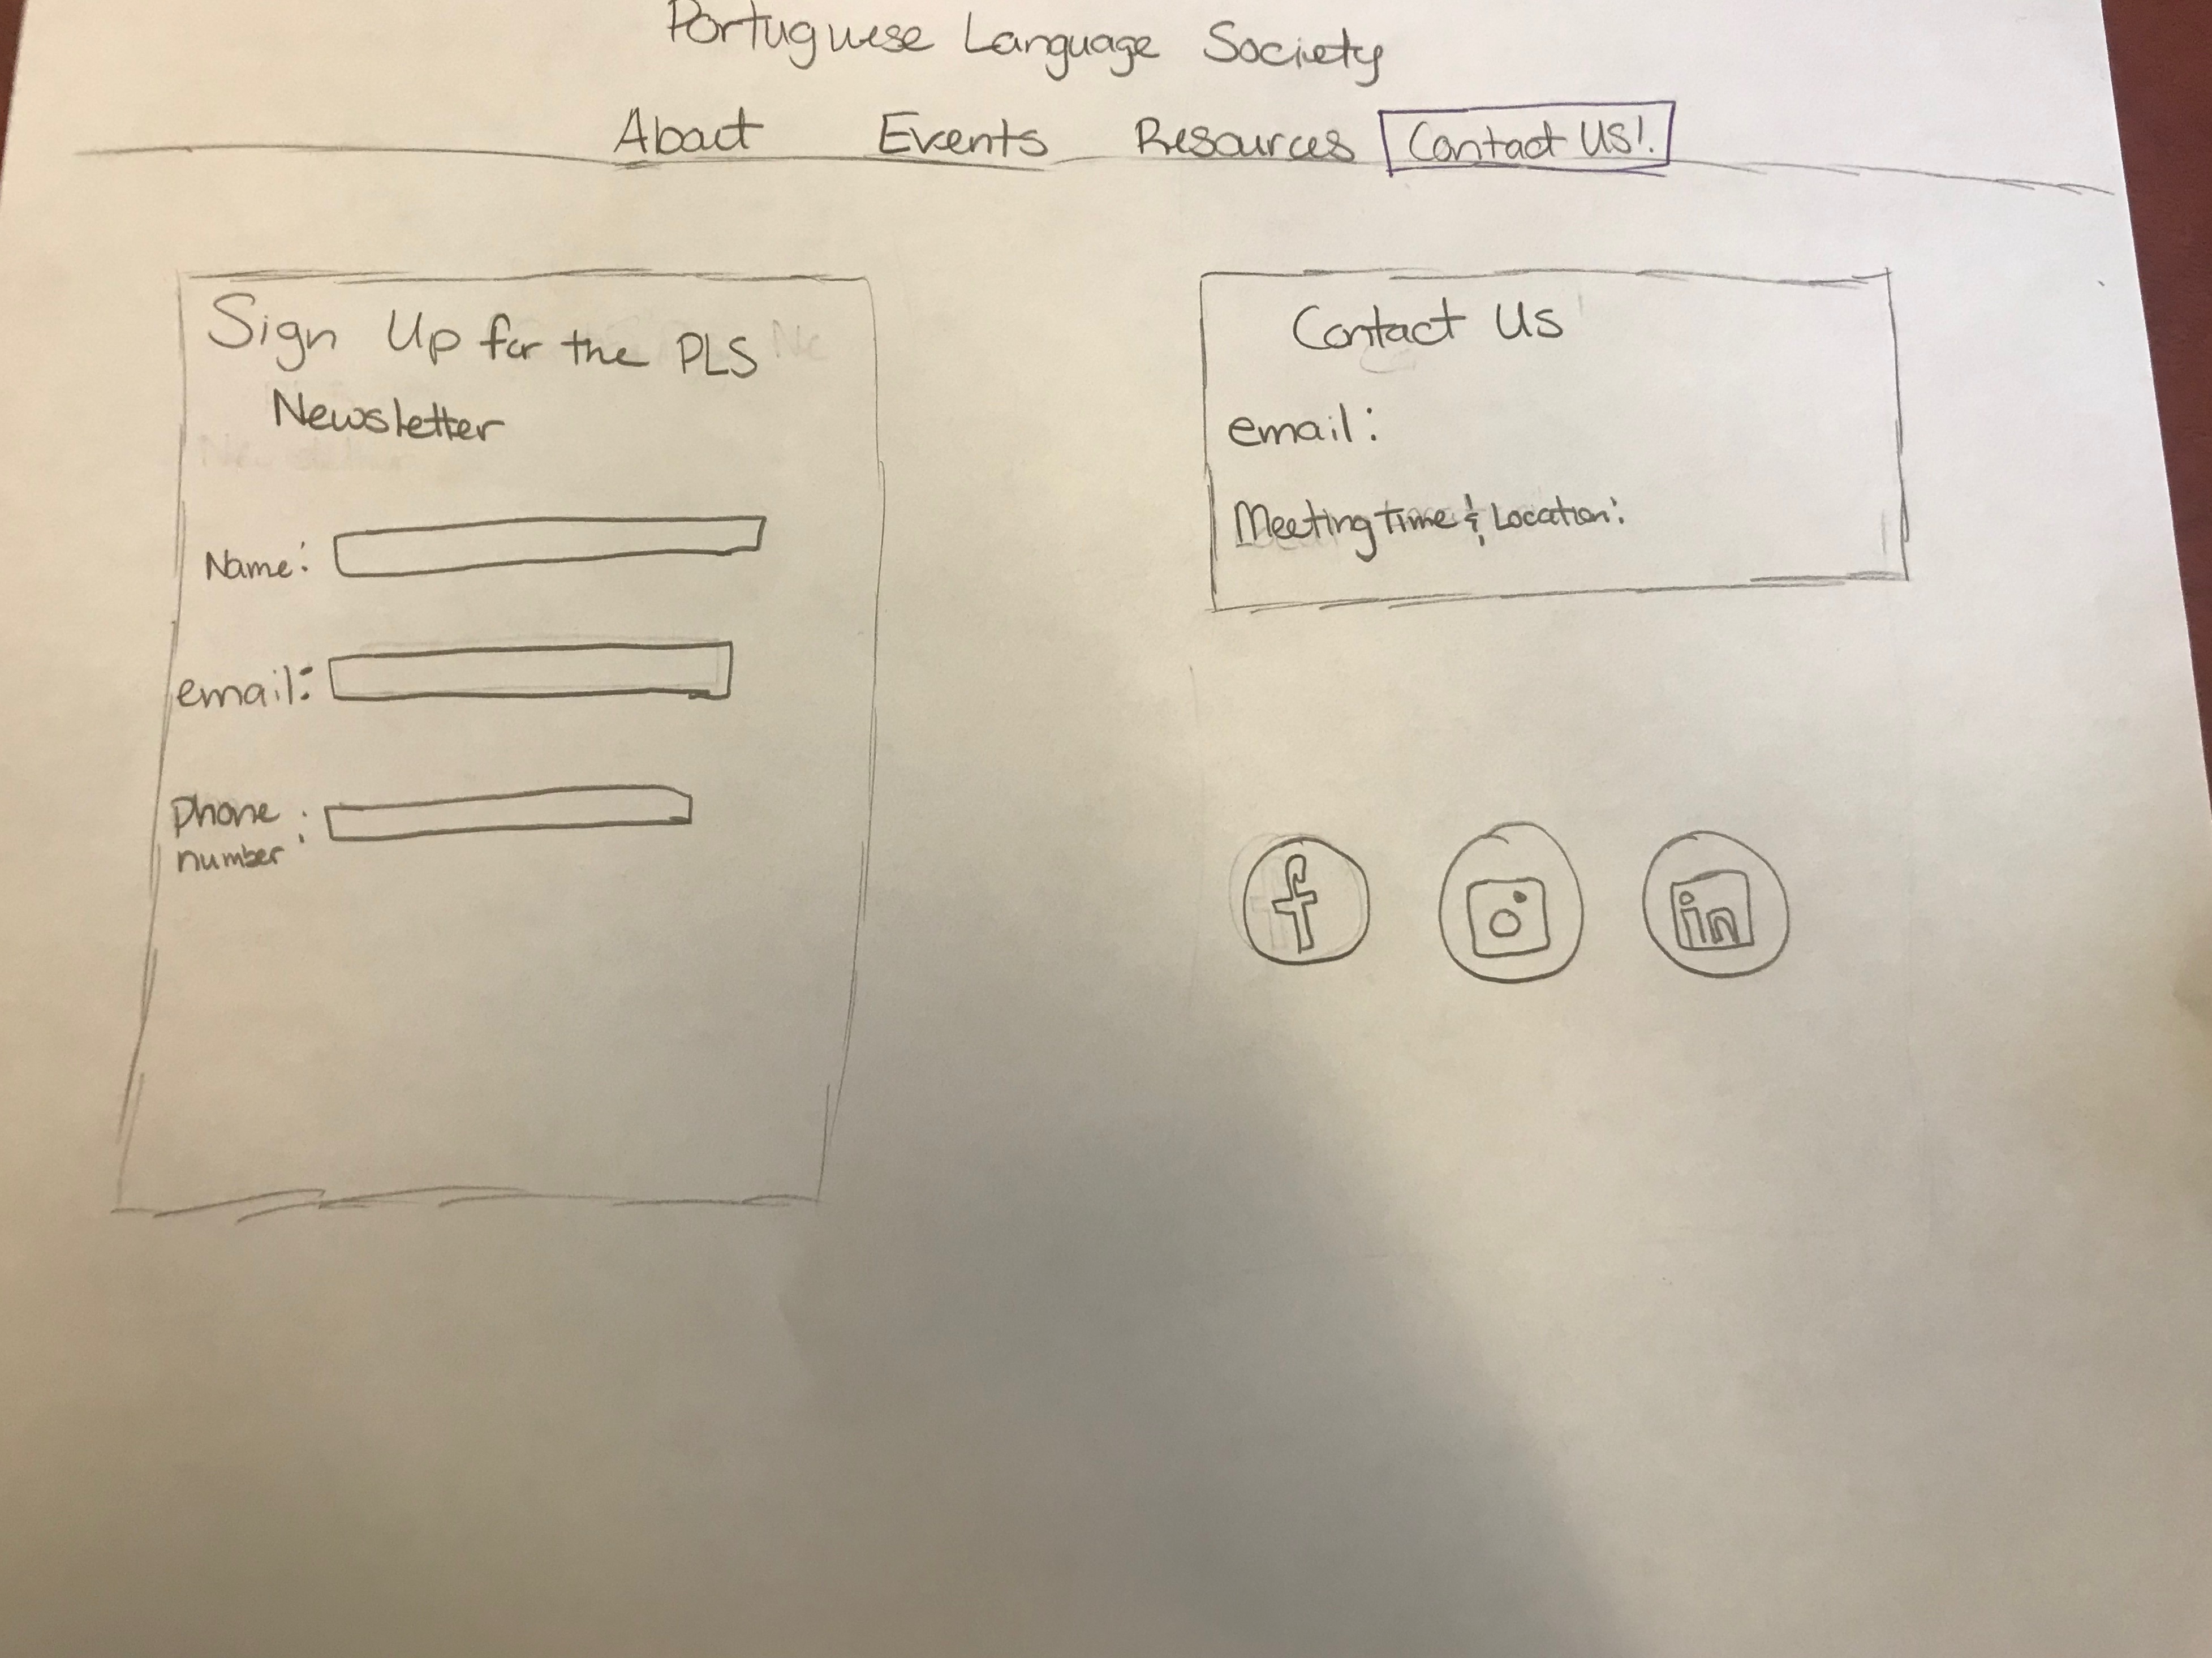 Portuguese Language Society
About Events Resources Contact Us!
Sign Up for the PLS
Newsletter
Name:
email:
Phone
number:
Contact Us
email:
Meeting Time & Location:
f
in